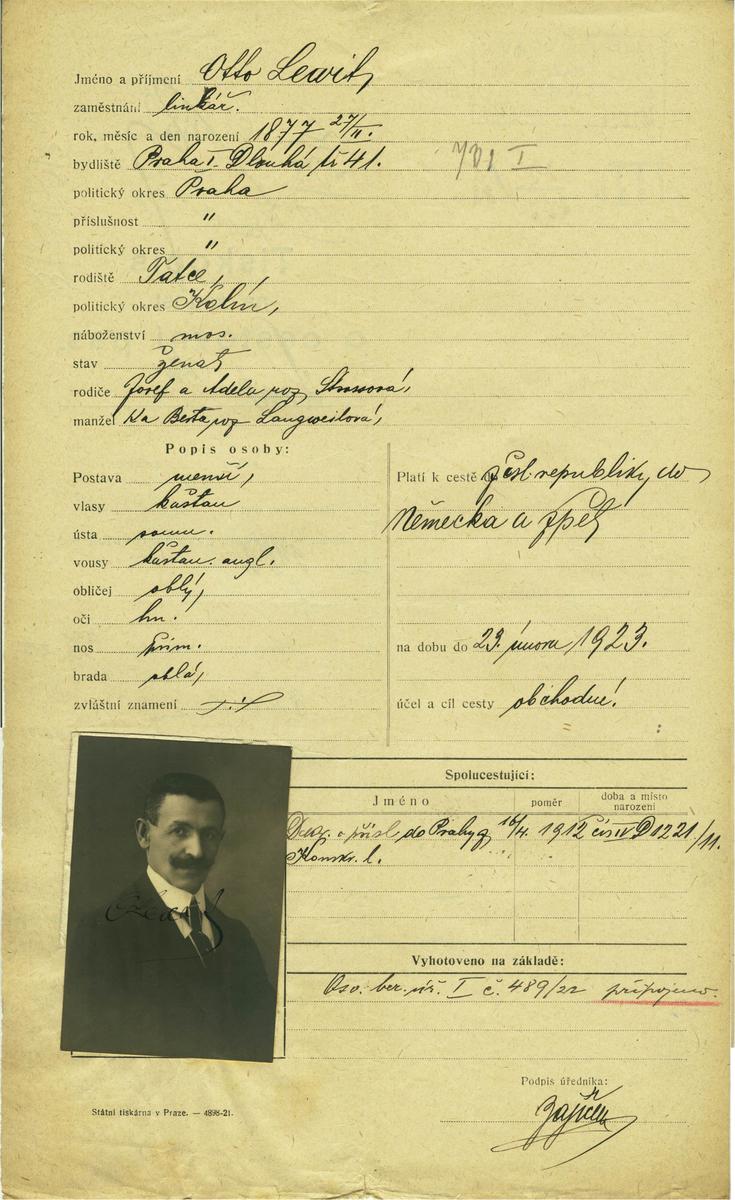 Jméno a příjmení Otto Lewit,
zaměstnání linkář.
rok, měsíc a den narození 1877 27/II.
bydliště Praha I. Dlouhá tř 41.
politický okres Praha
příslušnost "
politický okres "
rodiště Tatce,
politický okres Kolín,
náboženství mos.
stav ženat
rodiče Josef a Adela roz.
manžel ka Berta roz Langweilová,
Popis osoby:
Postava menší,
vlasy kaštan
ústa soum.
vousy kaštan. angl.
obličej oblý,
oči hn.
nos přim.
brada oblá,
zvláštní znamení
Platí k cestě do čsl. republiky, do
Německa a zpět
na dobu do 23. února 1923.
účel a cíl cesty obchodní!
Spolucestující:
Jméno poměr doba a místo narození
přísl do Prahy 16/4. 1912 čís IV D 1221/11.
Konskr. l.
Vyhotoveno na základě:
Osv. ber. úř. I č. 489/22 připojeno.
Podpis úředníka:
Státní tiskárna v Praze. — 4898-21.